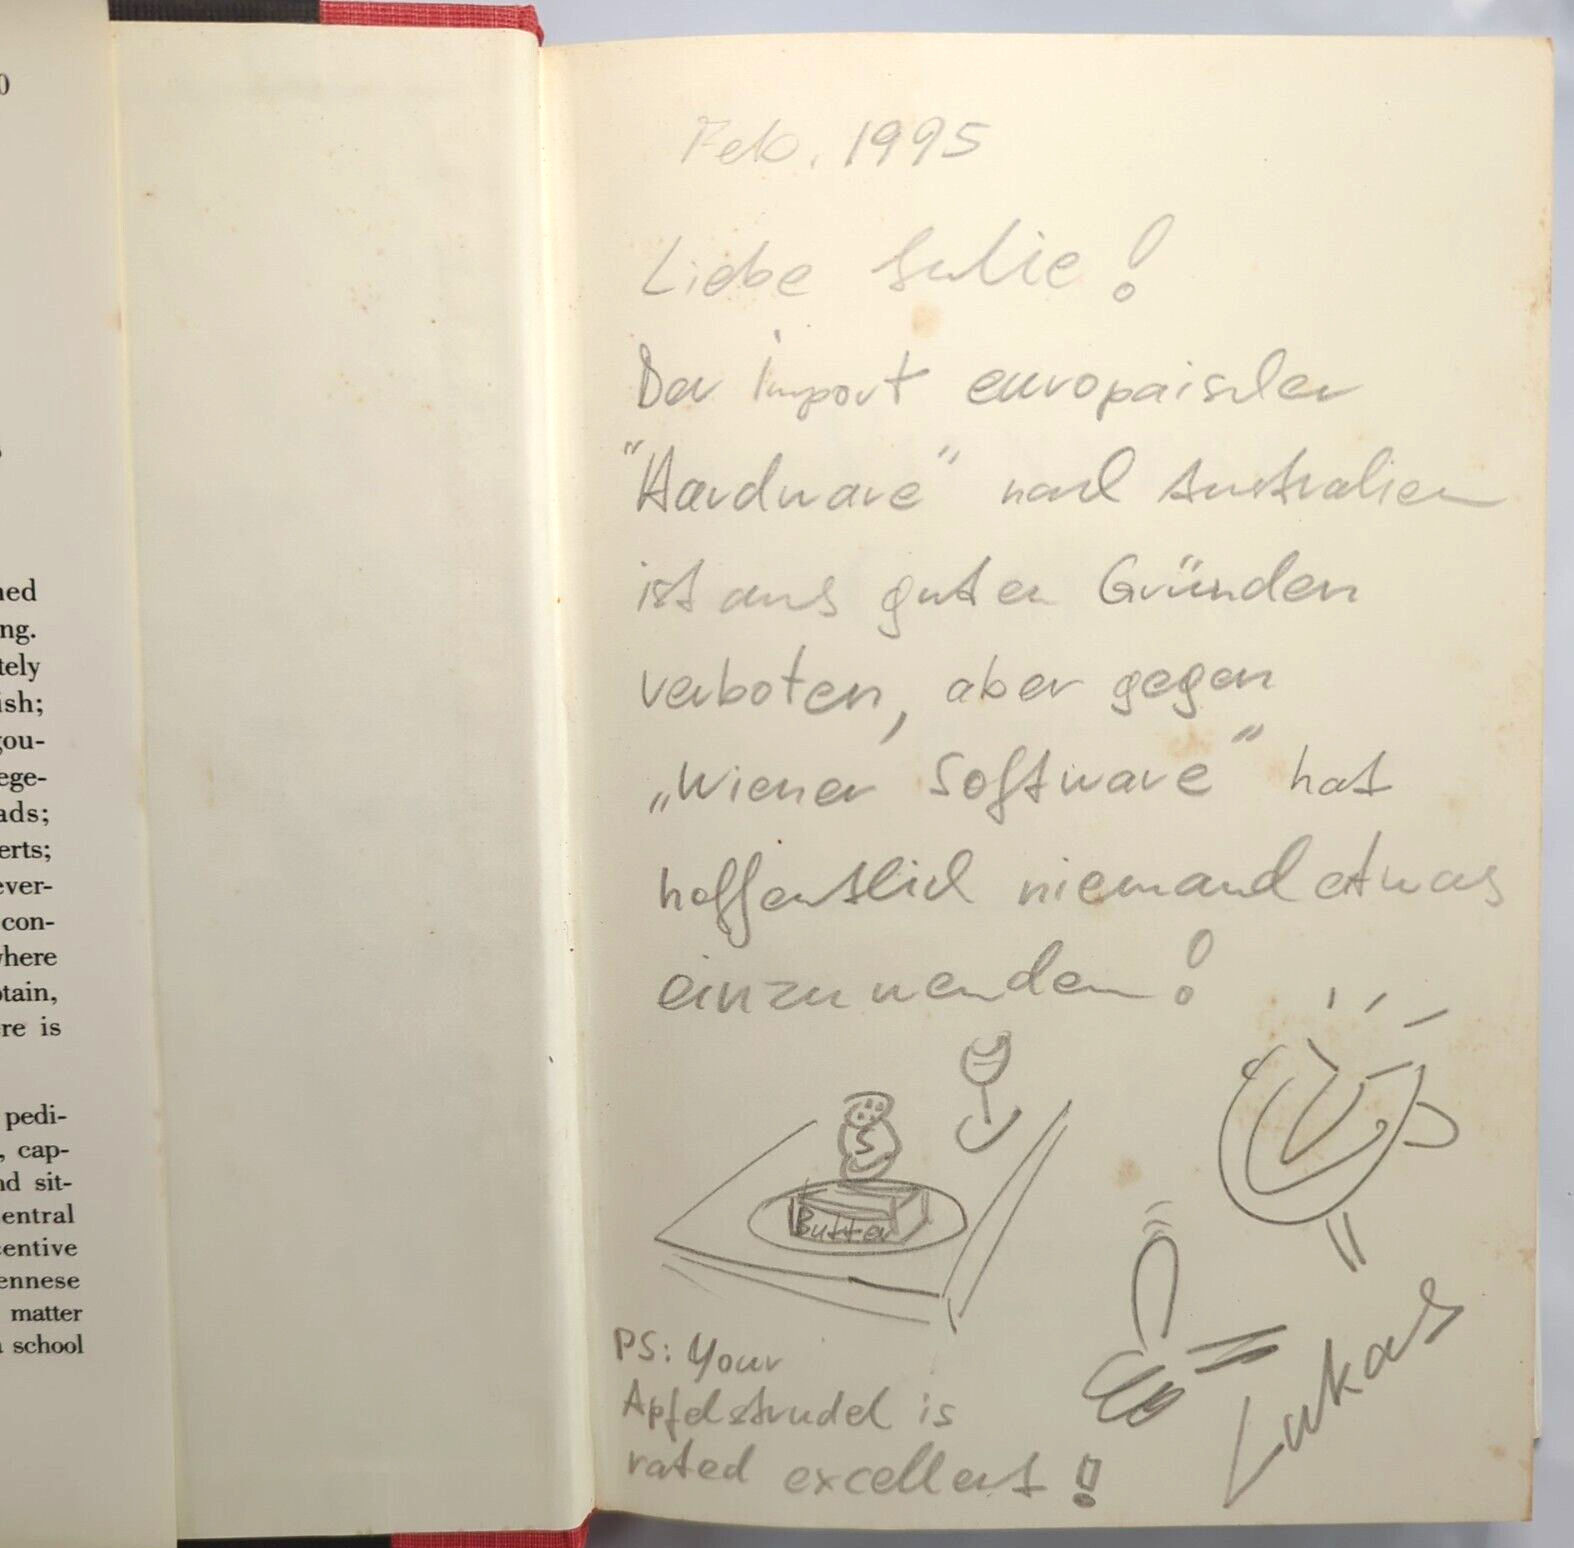 0
ned
ng.
tely
ish;
gou-
ege-
ads;
erts;
ever-
con-
where
otain,
re is
pedi-
, cap-
nd sit-
entral
centive
ennese
matter
a school
Feb. 1995
Liebe Julie!
Der Import europäischer
"Hardware" nach Australien
ist aus guten Gründen
verboten, aber gegen
„Wiener Software" hat
hoffentlich niemand etwas
einzuwenden!
Butter
PS: Your
Apfelstrudel is
rated excellent!
Lukas